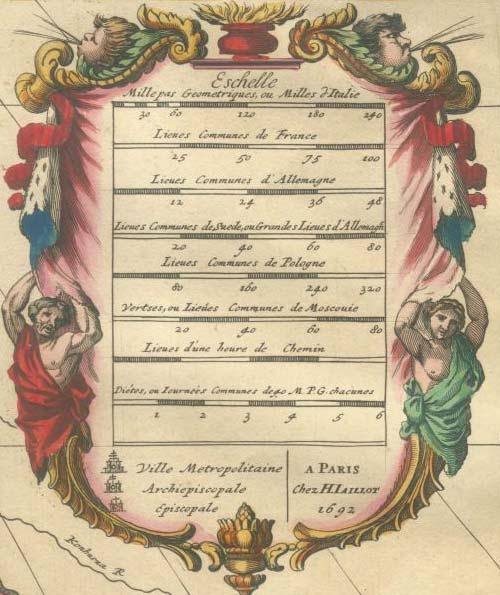 Eschelle
Mille pas Geometriques, ou Milles d'Italie
30 60 120 180 240
Lieues Communes de France
25 50 75 100
Lieues Communes d'Allemagne
12 24 36 48
Lieues Communes de Suede, ou Grandes Lieues d'Allemagn
20 40 60 80
Lieues Communes de Pologne
80 160 240 320
Vertses, ou Lieues Communes de Moscouie
20 40 60 80
Lieues d'une heure de Chemin
Diétes, ou Iournées Communes de 40 M. P. G. chacunes
1 2 3 4 5 6
Ville Metropolitaine
Archiepiscopale
Episcopale
A PARIS
Chez H. IAILLOT
1692
R.